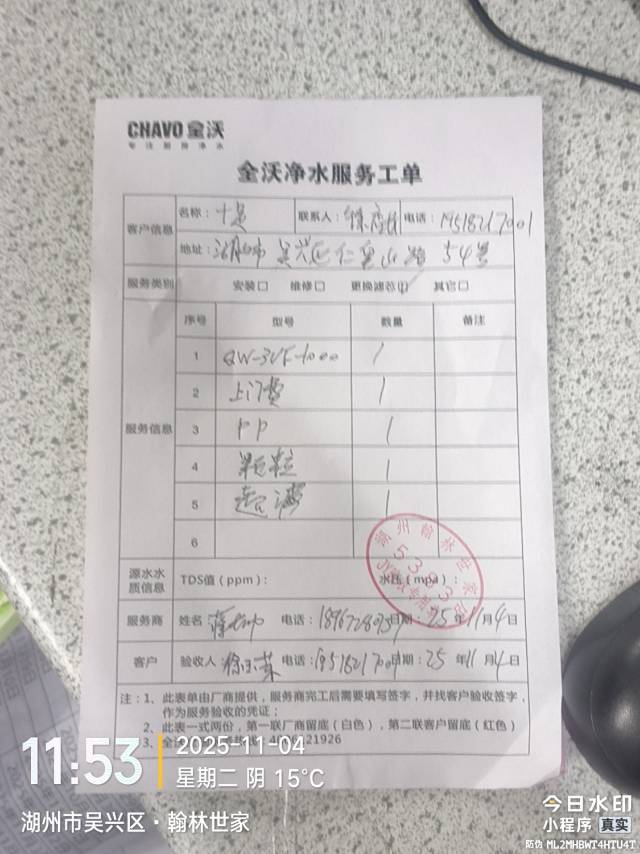 CHAVO 全沃
专注厨房净水
全沃净水服务工单
客户信息 名称： 联系人： 电话：19518217001
地址：湖州市吴兴区仁皇山路54号
服务类别 安装□ 维修□ 更换滤芯☑ 其它□
服务信息 序号 型号 数量 备注
1 QW-3UF-1000 1
2 上门费 1
3 PP 1
4 颗粒 1
5 超滤 1
6
源水水质信息 TDS值（ppm）： 水压（mpa）：
湖州翰林世家
服务商 姓名 电话： 日期：25年11月4日
客户 验收人 电话： 日期：25年11月4日
注：1、此表单由厂商提供，服务商完工后需要填写签字，并找客户验收签字，
作为服务验收的凭证；
2、此表一式两份，第一联厂商留底（白色），第二联客户留底（红色）
3、全沃 21926
11:53 2025-11-04
星期二 阴 15℃
湖州市吴兴区·翰林世家
今日水印
小程序 真实
防伪 ML2MHBWT4HTU4T